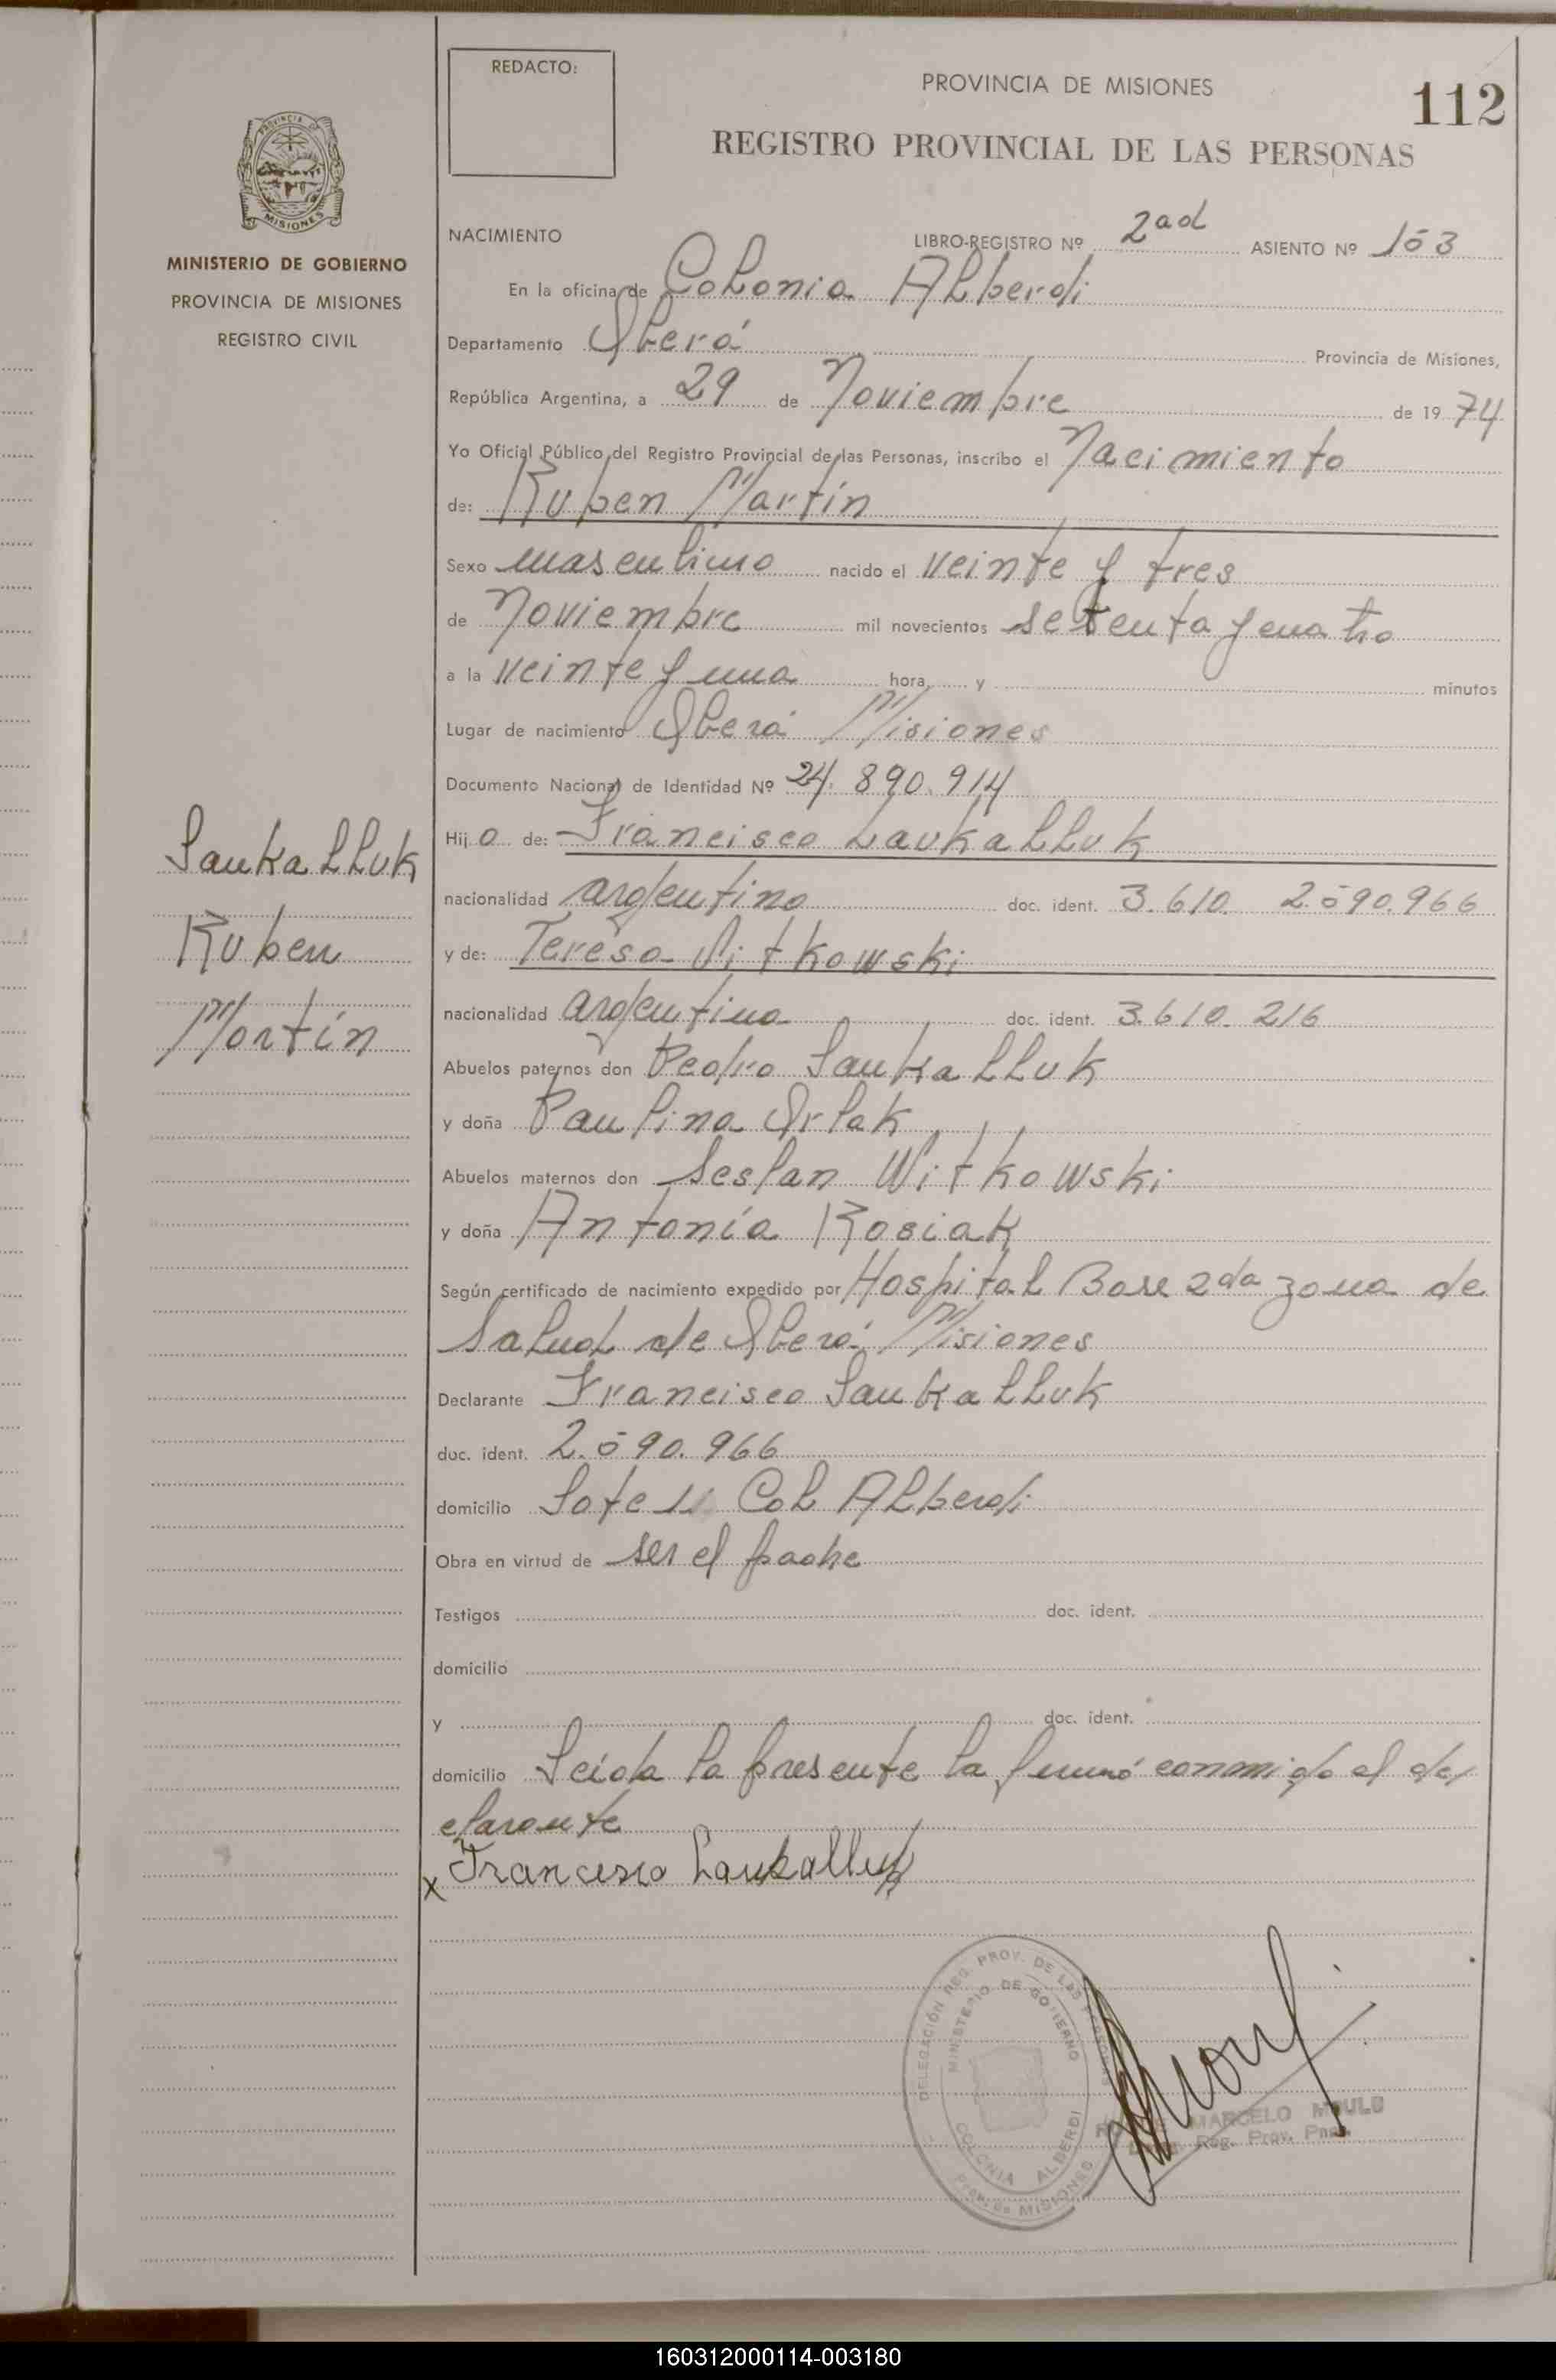 REDACTO:
PROVINCIA DE MISIONES
112
REGISTRO PROVINCIAL DE LAS PERSONAS
PROVINCIA DE
MISIONES
MINISTERIO DE GOBIERNO
PROVINCIA DE MISIONES
REGISTRO CIVIL
NACIMIENTO
LIBRO-REGISTRO Nº 2ad ASIENTO Nº 153
En la oficina de Colonia Alberdi
Departamento Oberá Provincia de Misiones,
República Argentina, a 29 de Noviembre de 1974
Yo Oficial Público del Registro Provincial de las Personas, inscribo el Nacimiento
de: Ruben Martín
Sexo masculino nacido el veinte y tres
de Noviembre mil novecientos setenta y cuatro
a la veinte y una hora y minutos
Lugar de nacimiento Oberá Misiones
Documento Nacional de Identidad Nº 24.890.914
Hijo de: Francisco Laukalluk
nacionalidad argentino doc. ident. 3.610. 2.590.966
y de: Teresa Witkowski
nacionalidad argentina doc. ident. 3.610.216
Abuelos paternos don Pedro Laukalluk
y doña Paulina Orlak
Abuelos maternos don Seslan Witkowski
y doña Antonía Rosiak
Según certificado de nacimiento expedido por Hospital Base 2da zona de
Salud de Oberá Misiones
Declarante Francisco Laukalluk
doc. ident. 2.590.966
domicilio Lote 11 Col Alberdi
Obra en virtud de ser el padre
Testigos doc. ident.
domicilio
y doc. ident.
domicilio Leida la presente la firmó conmigo el de
clarante
x Francisco Laukalluk
Laukalluk
Ruben
Martín
DELEGACIÓN REG. PROV. DE LAS PERSONAS
MINISTERIO DE GOBIERNO
COLONIA ALBERDI
Prov. de MISIONES
MARCELO MAULD
Reg. Prov.
160312000114-003180